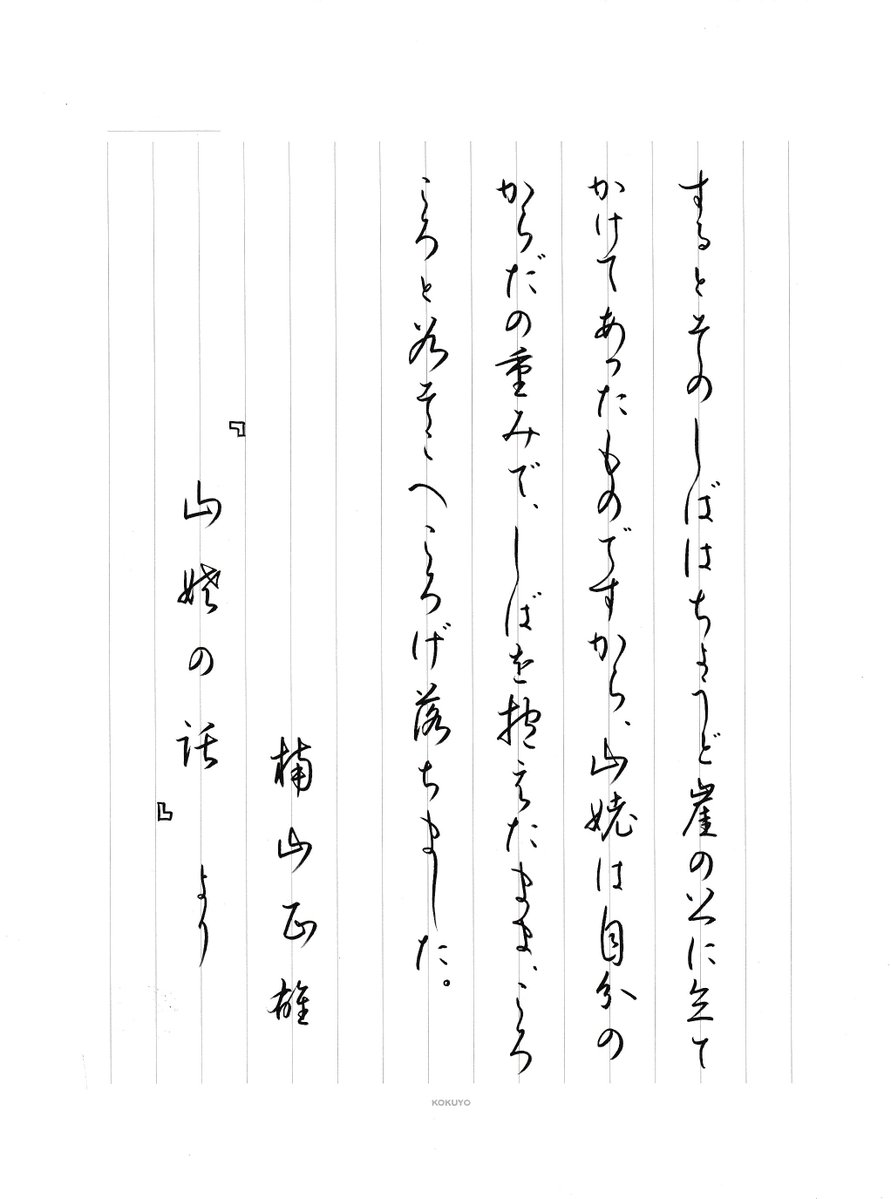 するとそのしばはちょうど崖の上に立て
かけてあったものですから、山姥は自分の
からだの重みで、しばを抱えたまま、ころ
ころと谷そこへころげ落ちました。
楠山正雄
『山姥の話』より
KOKUYO